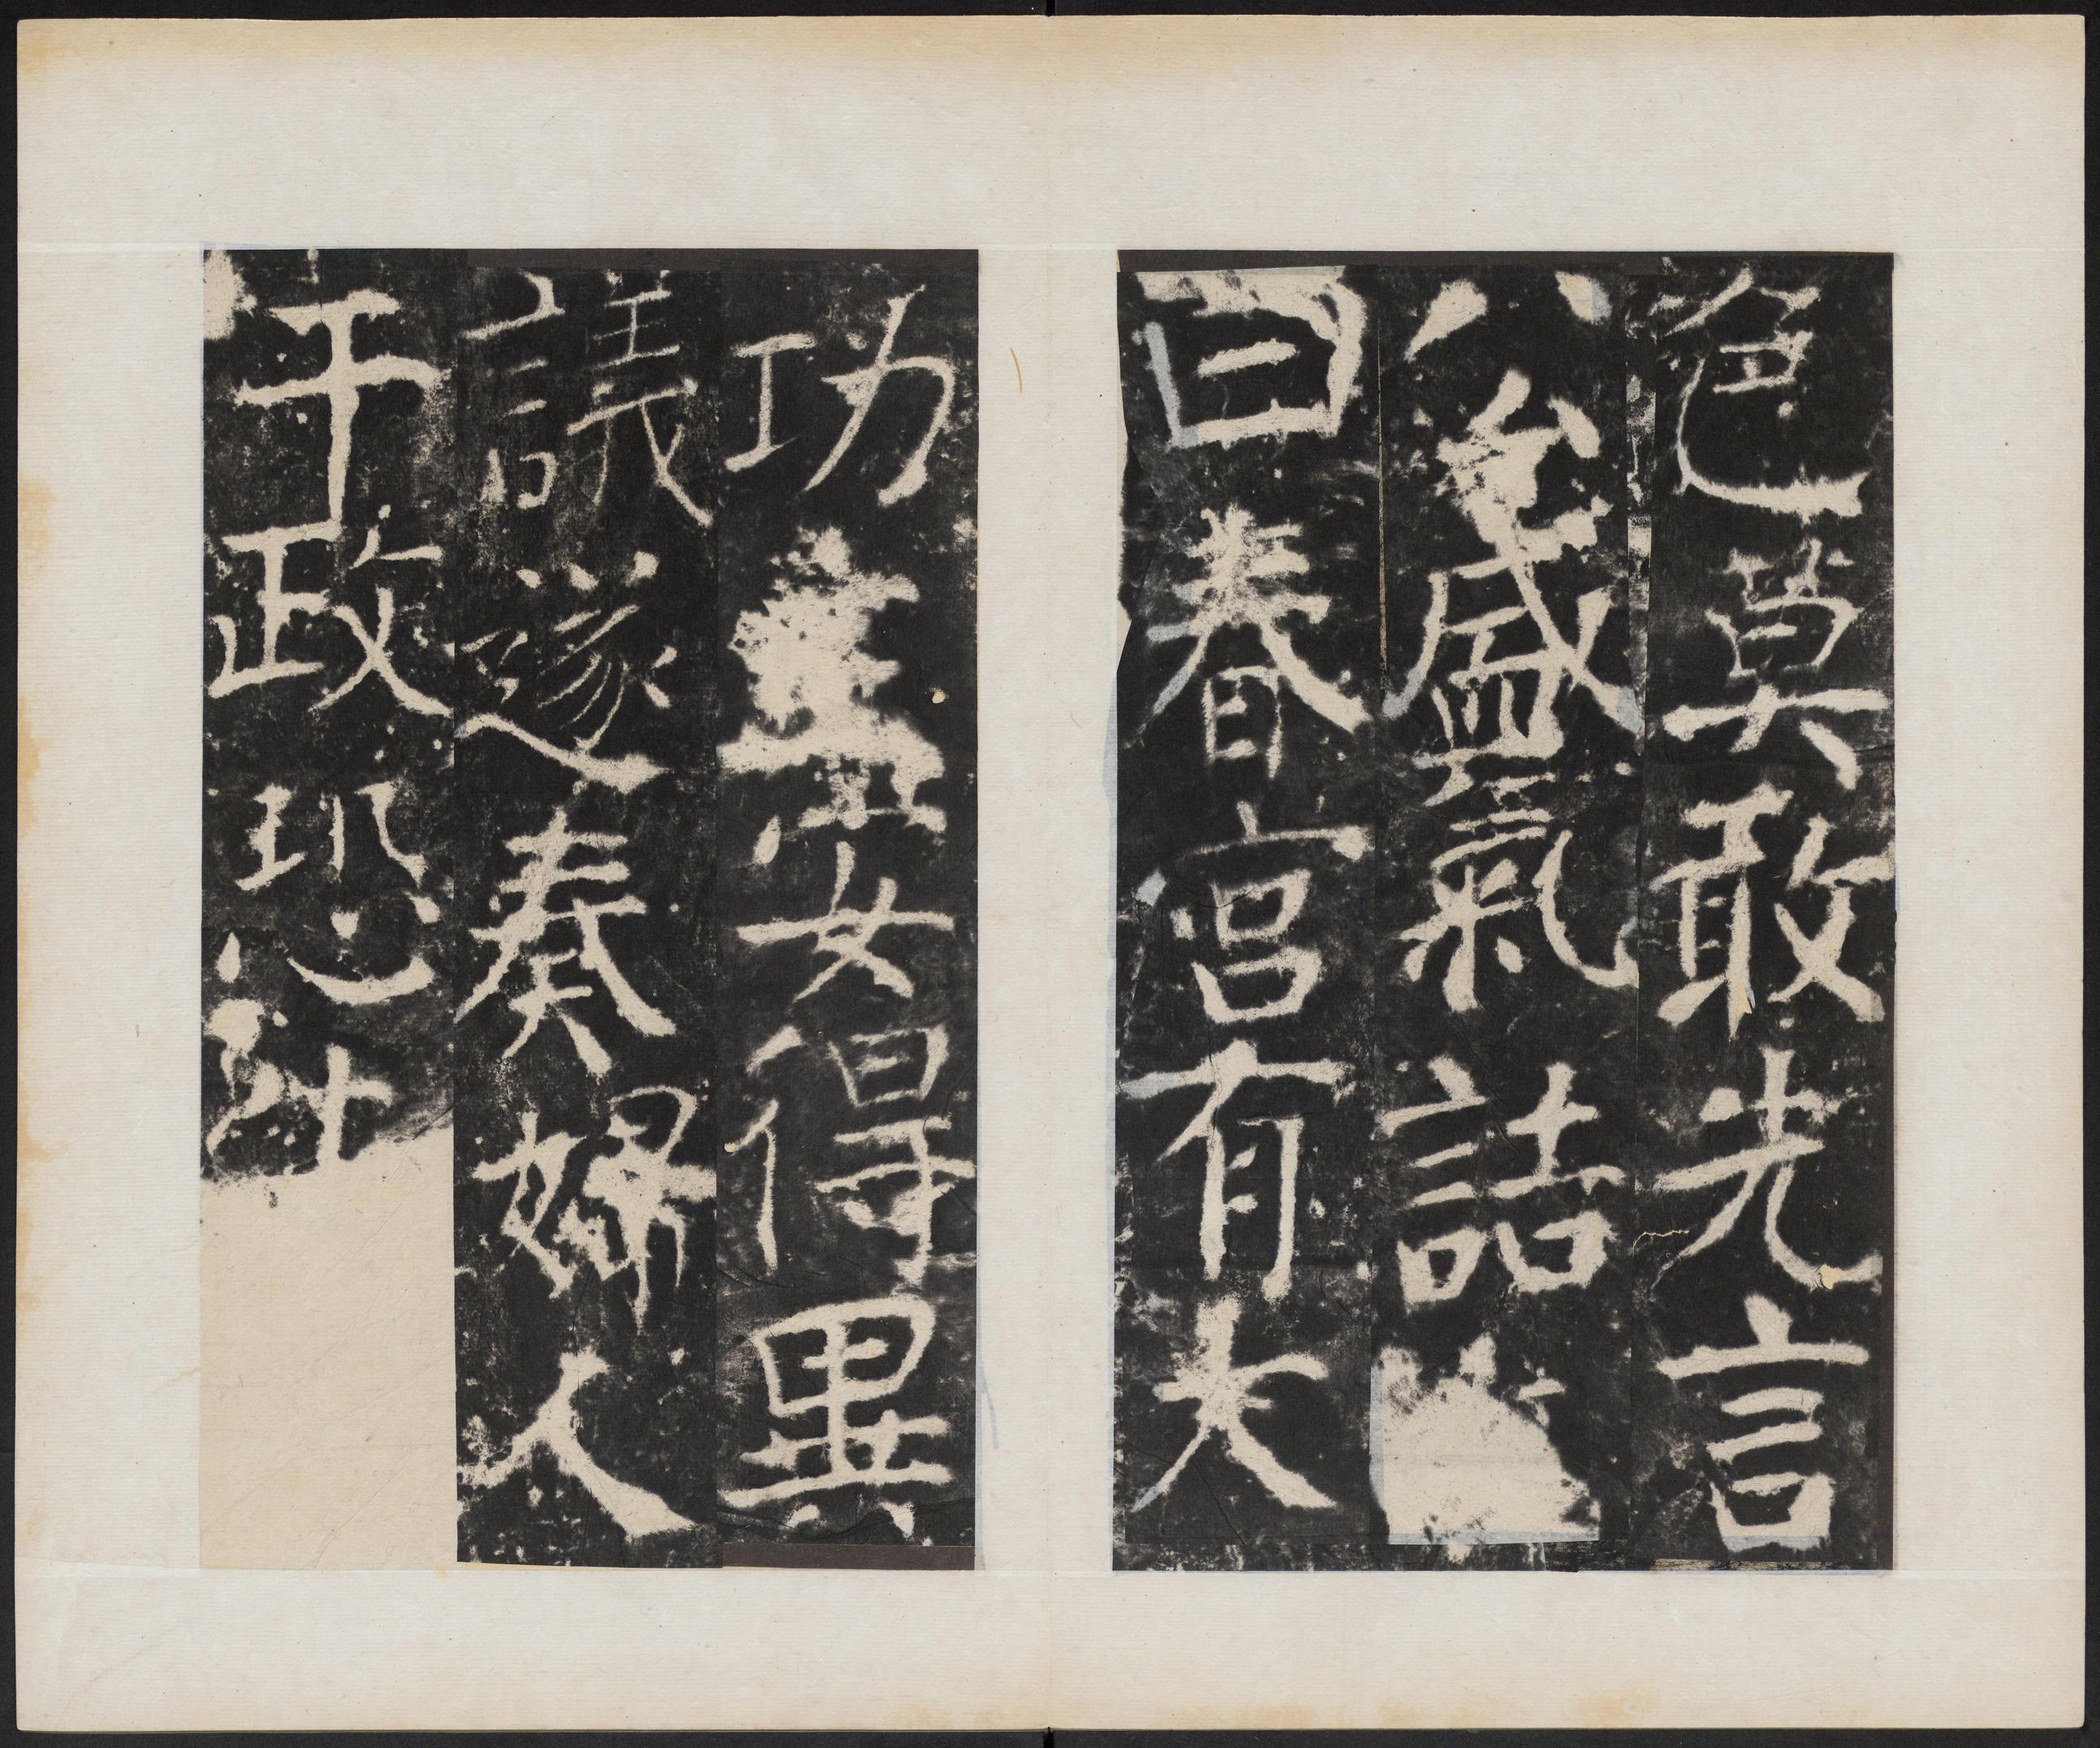 色莫敢先言
公盛氣詰
曰春宮有大
功安得異
議遂奏婦人
干政恐社